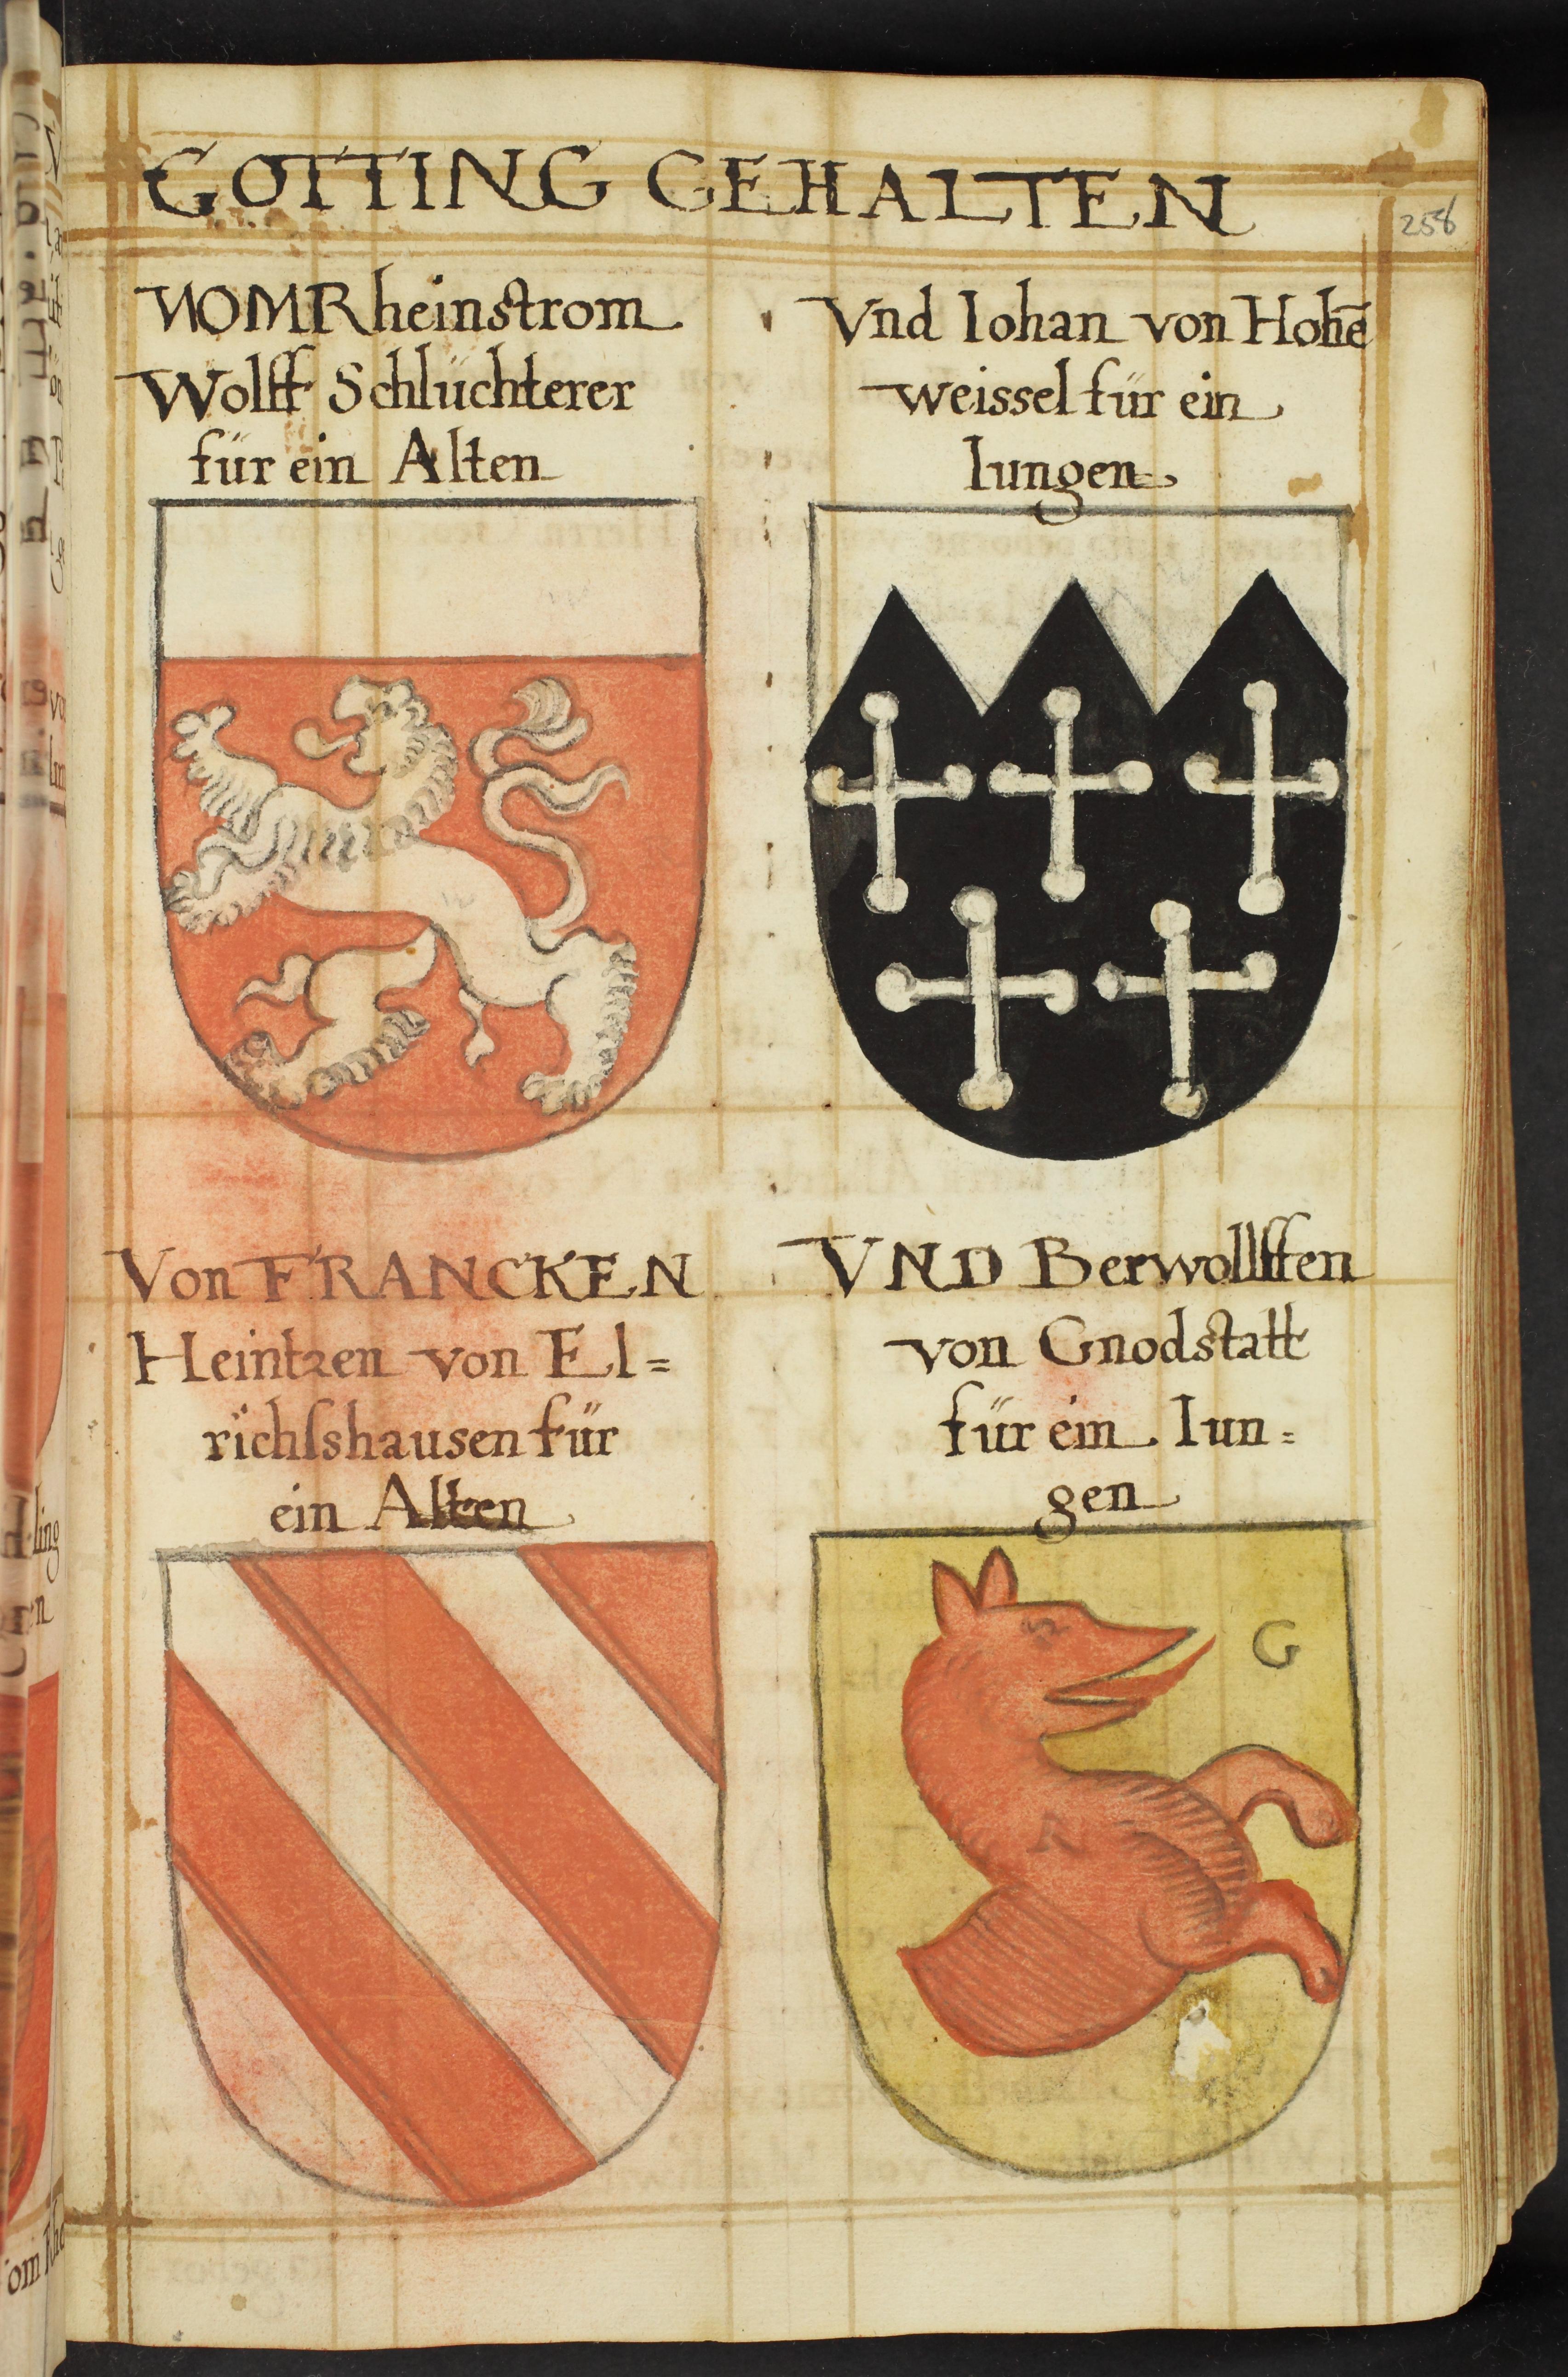 GOTTING GEHALTEN
258
VOM Rheinstrom
Wolff Schlüchterer
für ein Alten
Vnd Iohan von Hohē
weissel für ein
Iungen
Von FRANCKEN
Heintzen von El=
richsshausen für
ein Alten
VND Berwollfften
von Gnodstatt
für ein Iun=
gen
G
R